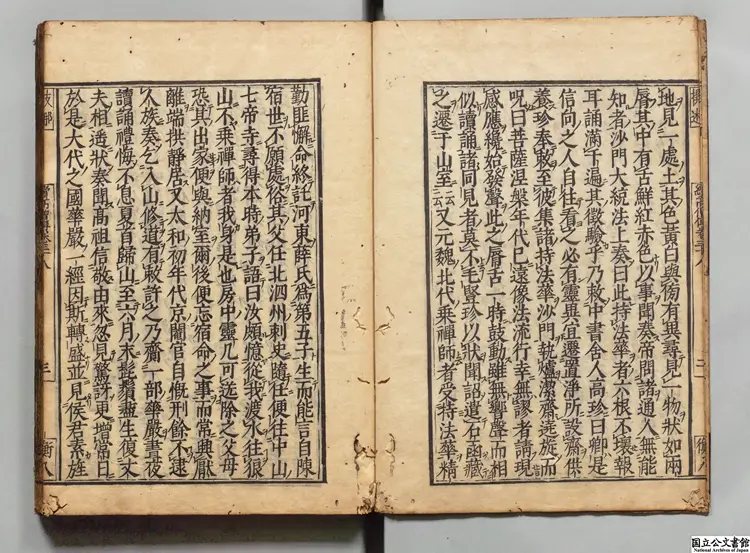 地見一處土其色黃白與傍有異尋見一物狀如兩
脣其中有舌鮮紅赤色以事聞奏帝問諸通人無能
知者沙門大統法上奏曰此持法華者六根不壞報
耳誦滿千遍其徵驗乎乃敕中書舍人高珍曰卿是
信向之人自往看之必有靈異宜遷置淨所設齋供
養珍奉敕至彼集諸持法華沙門執爐潔齋遶旋而
呪曰菩薩涅槃年代已遠像法流行幸無謬者請現
感應纔始發聲此之脣舌一時鼓動雖無響聲而相
似讀誦諸同見者莫不毛豎珍以狀聞詔遣石函藏
之遷于山室云云又元魏北代乘禪師者受持法華精
勤匪懈命終託河東薛氏爲第五子生而能言自陳
宿世不願處俗其父任北泗州刺史隨任便往中山
七帝寺尋得本時弟子語曰汝頗憶從我渡水往狼
山不乘禪師者我身是也房中靈几可送除之父母
恐其出家便與納室爾後便忘宿命之事而常興厭
離端拱靜居又太和初年代京閹官自慨刑餘不逮
人族奏乞入山修道有敕許之乃齎一部華嚴晝夜
讀誦禮悔不息夏首歸山至六月末髭鬚盡生復丈
夫相遂狀奏聞高祖信敬由來忽見驚訝更增常日
於是大代之國華嚴一經因斯轉盛並見侯君素旌
国立公文書館
National Archives of Japan